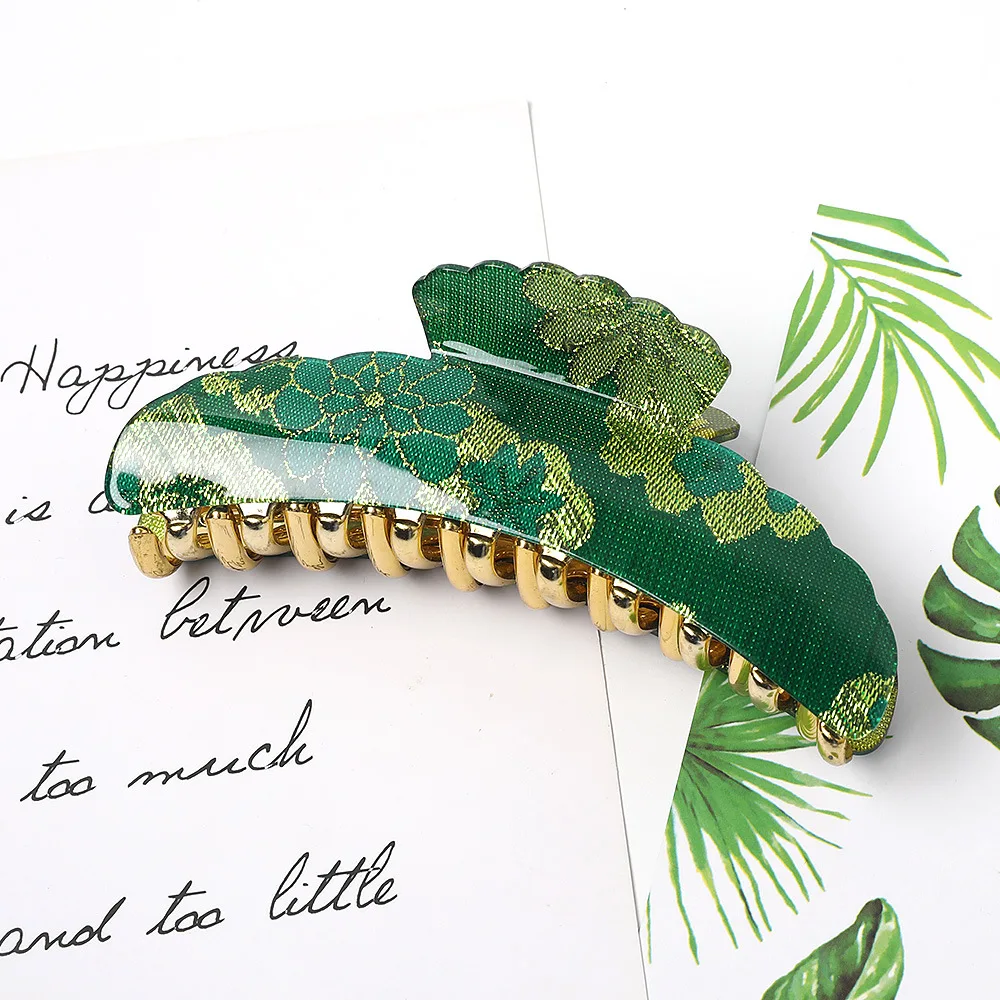 Happiness
is a
tation between
too much
and too little